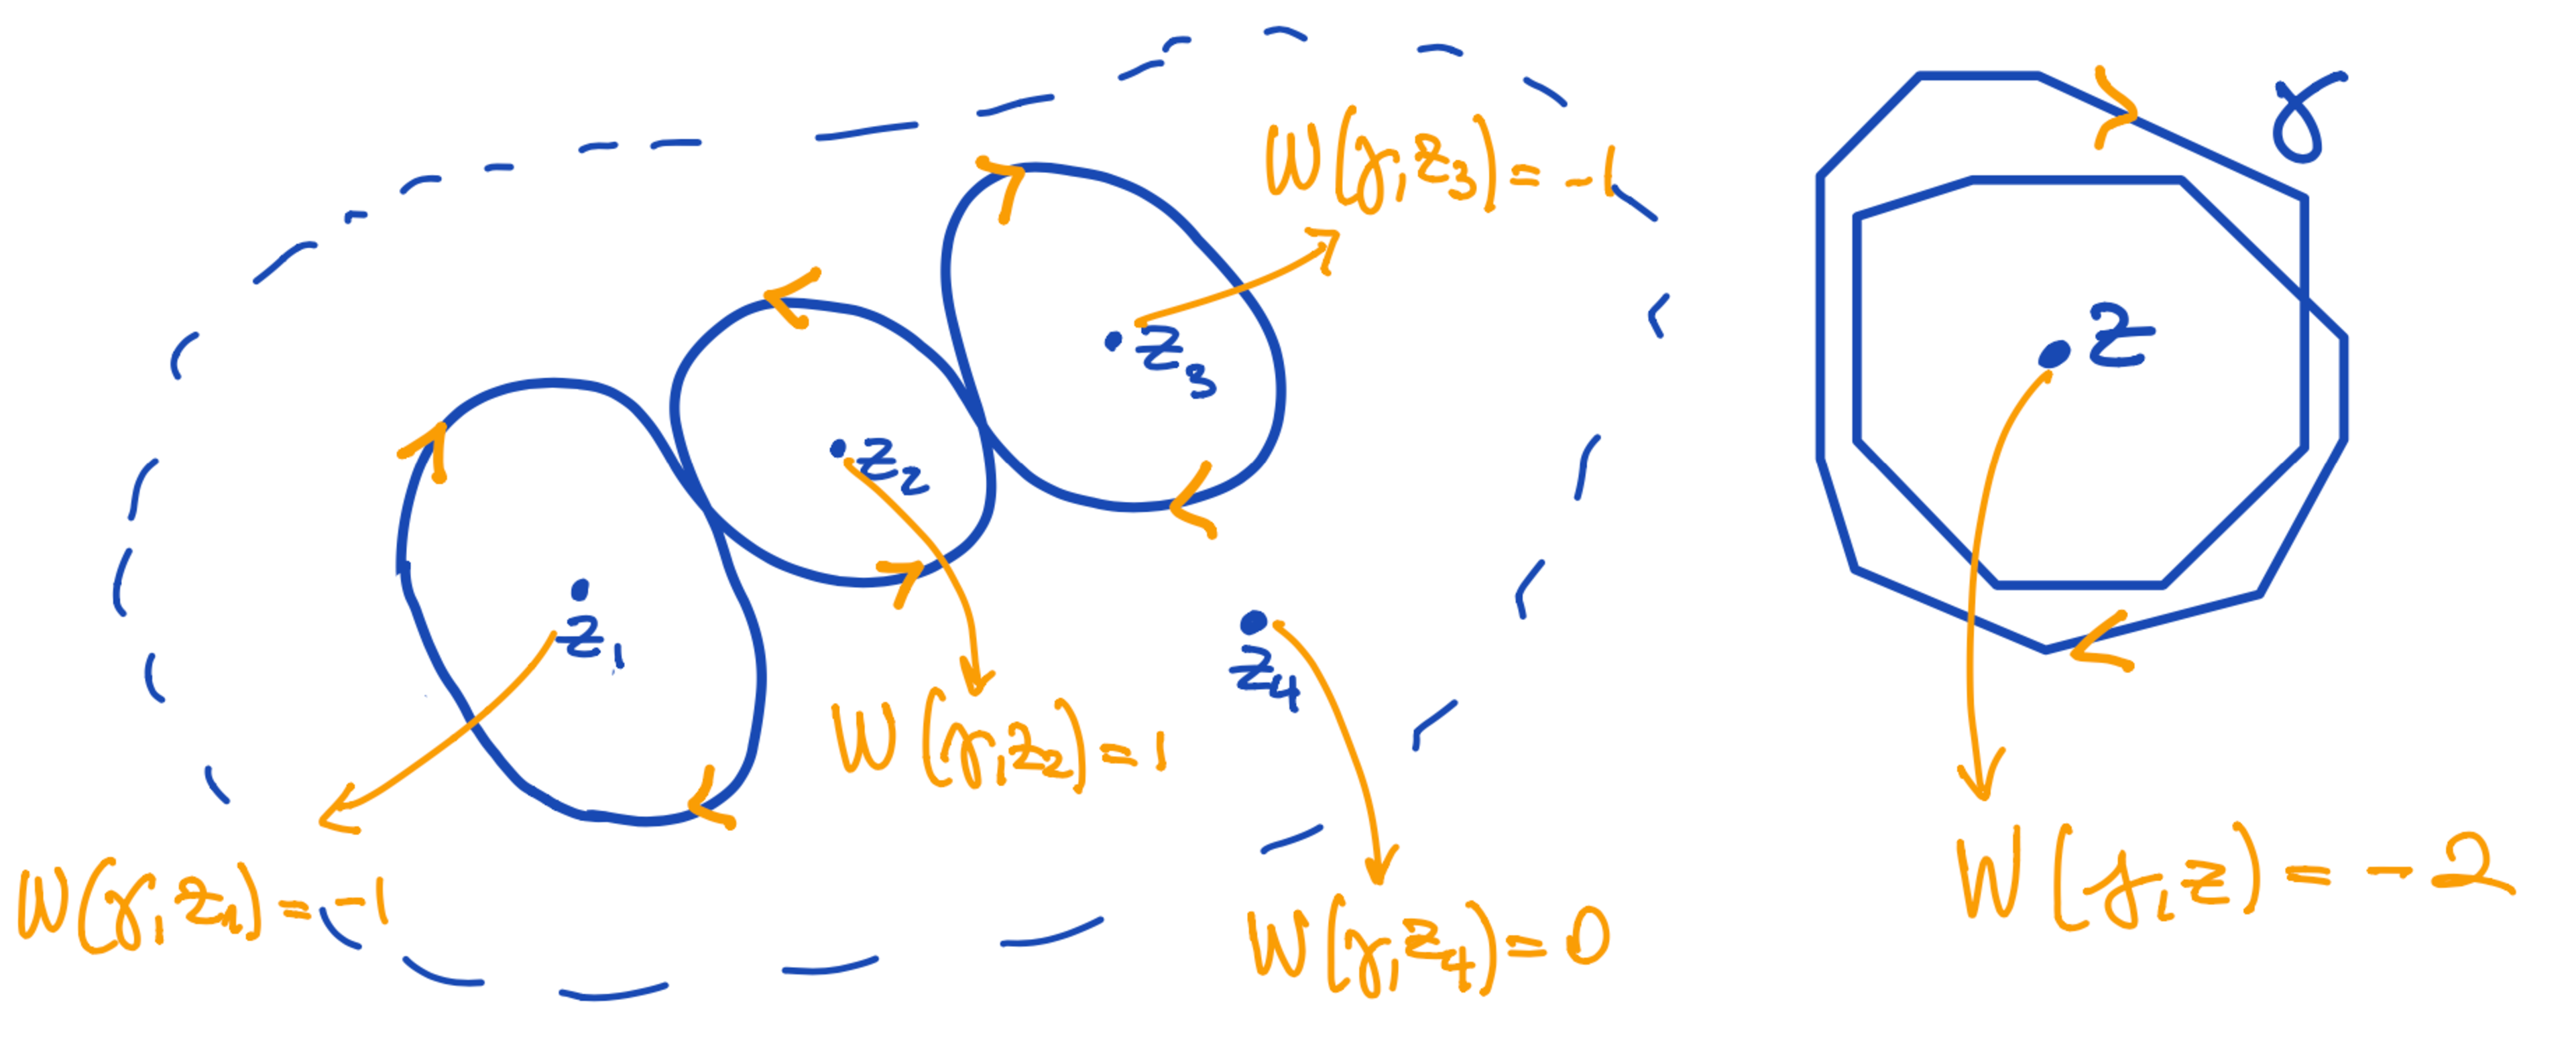 γ
W(γ,z₃) = -1
z
z₃
z₂
z₁
z₄
W(γ,z₂) = 1
W(γ,z₁) = -1
W(γ,z₄) = 0
W(γ,z) = -2